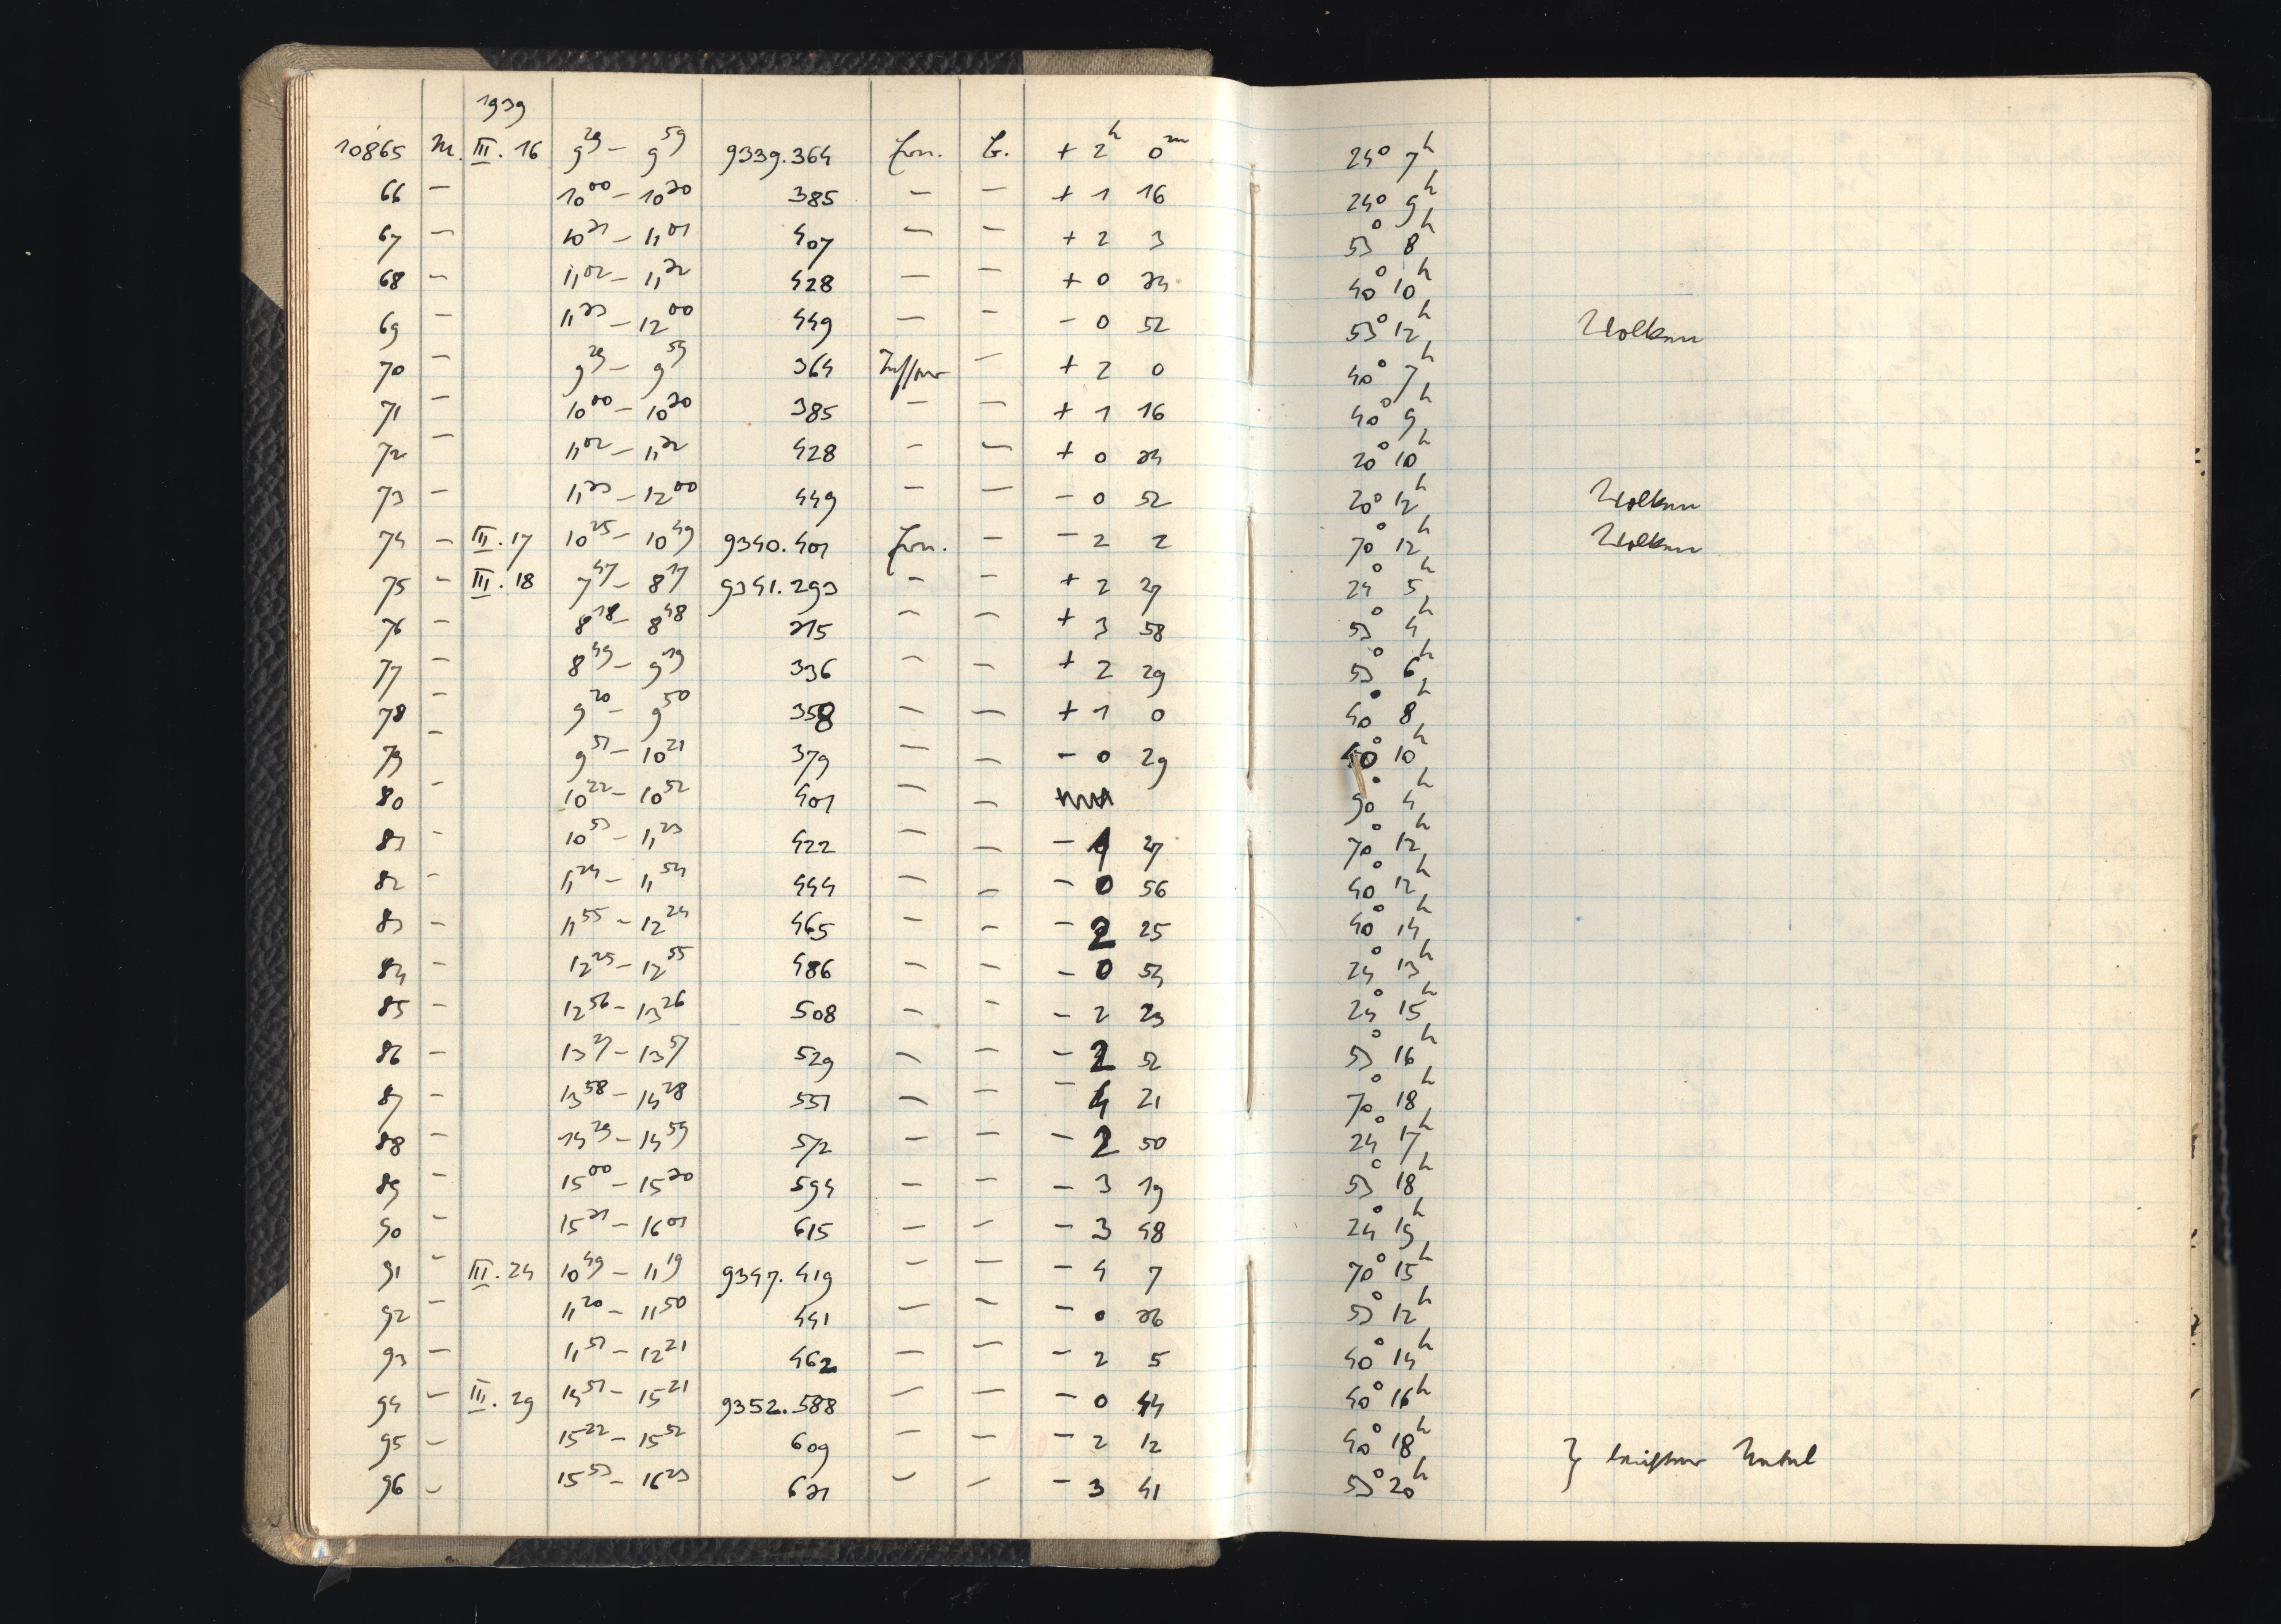 1939
10865 M. III. 16 9²⁹ – 9⁵⁹ 9339.364 Ern. + 2ʰ 0ᵐ 24° 7ʰ
66 – 10⁰⁰ – 10³⁰ 385 – – + 1 16 24° 9ʰ
67 – 10³¹ – 11⁰¹ 407 – – + 2 3 53° 8ʰ
68 – 11⁰² – 11³² 428 – – + 0 34 40° 10ʰ
69 – 11³³ – 12⁰⁰ 449 – – – 0 52 53° 12ʰ Wolken
70 – 9²⁹ – 9⁵⁹ 364 Tessar – + 2 0 40° 7ʰ
71 – 10⁰⁰ – 10³⁰ 385 – – + 1 16 40° 9ʰ
72 – 11⁰² – 11³² 428 – – + 0 34 30° 10ʰ
73 – 11³³ – 12⁰⁰ 449 – – – 0 52 30° 12ʰ Wolken
74 – III. 17 10²⁵ – 10⁴⁹ 9340.401 Ern. – – 2 2 70° 12ʰ Wolken
75 – III. 18 7⁴⁷ – 8¹⁷ 9341.293 – – + 2 27 24° 5ʰ
76 – 8¹⁸ – 8⁴⁸ 315 – – + 3 58 53° 4ʰ
77 – 8⁴⁹ – 9¹⁹ 336 – – + 2 29 53° 6ʰ
78 – 9²⁰ – 9⁵⁰ 358 – – + 1 0 40° 8ʰ
79 – 9⁵¹ – 10²¹ 379 – – – 0 29 40° 10ʰ
80 – 10²² – 10⁵² 401 – – 90° 4ʰ
81 – 10⁵³ – 11²³ 422 – – – 1 27 70° 12ʰ
82 – 11²⁴ – 11⁵⁴ 444 – – – 0 56 40° 12ʰ
83 – 11⁵⁵ – 12²⁴ 465 – – – 2 25 40° 14ʰ
84 – 12²⁵ – 12⁵⁵ 486 – – – 0 54 24° 13ʰ
85 – 12⁵⁶ – 13²⁶ 508 – – – 2 23 24° 15ʰ
86 – 13²⁷ – 13⁵⁷ 529 – – – 2 52 53° 16ʰ
87 – 13⁵⁸ – 14²⁸ 551 – – – 4 21 70° 18ʰ
88 – 14²⁹ – 14⁵⁹ 572 – – – 2 50 24° 17ʰ
89 – 15⁰⁰ – 15³⁰ 594 – – – 3 19 53° 18ʰ
90 – 15³¹ – 16⁰¹ 615 – – – 3 48 24° 19ʰ
91 – III. 24 10⁴⁹ – 11¹⁹ 9347.419 – – – 4 7 70° 15ʰ
92 – 11²⁰ – 11⁵⁰ 441 – – – 0 36 53° 12ʰ
93 – 11⁵¹ – 12²¹ 462 – – – 2 5 40° 14ʰ
94 – III. 29 14⁵¹ – 15²¹ 9352.588 – – – 0 44 40° 16ʰ
95 – 15²² – 15⁵² 609 – – – 2 12 40° 18ʰ } leichter Nebel
96 – 15⁵³ – 16²³ 631 – – – 3 41 53° 20ʰ